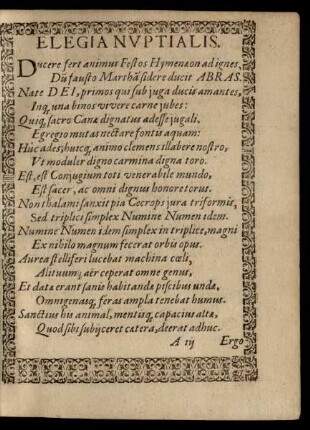 ELEGIA NVPTIALIS.
Ducere fert animus Festos Hymenæon ad ignes,
Dũ fausto Marthã sidere ducit ABRAS.
Nate DEI, primos qui sub juga ducis amantes,
Inq, una binos vivere carne jubes:
Quiq, sacro Canæ dignatus adesse jugali,
Egregio mutas nectare fontis aquam:
Huc ades, hucq, animo clemens illabere nostro,
Vt moduler digno carmina digna toro.
Est, est Conjugium toti venerabile mundo,
Est sacer, ac omni dignus honore torus.
Non thalami sanxit pia Cecrops jura triformis,
Sed triplici simplex Numine Numen idem.
Numine Numen idem simplex in triplice, magni
Ex nihilo magnum fecerat orbis opus.
Aurea stelliferi lucebat machina cœli,
Alituum; aër ceperat omne genus,
Et datæ erant sanis habitandæ piscibus undæ,
Omnigenasq, feras ampla tenebat humus.
Sanctius his animal, mentisq, capacius altæ,
Quod sibi subijceret cætera, deerat adhuc.
A iij Ergo